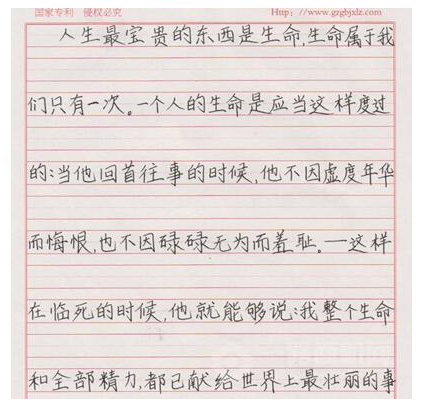 国家专利 侵权必究 Http://www.gzgbjxlz.com
人生最宝贵的东西是生命,生命属于我
们只有一次。一个人的生命是应当这样度过
的:当他回首往事的时候,他不因虚度年华
而悔恨,也不因碌碌无为而羞耻。—这样
在临死的时候,他就能够说:我整个生命
和全部精力,都已献给世界上最壮丽的事